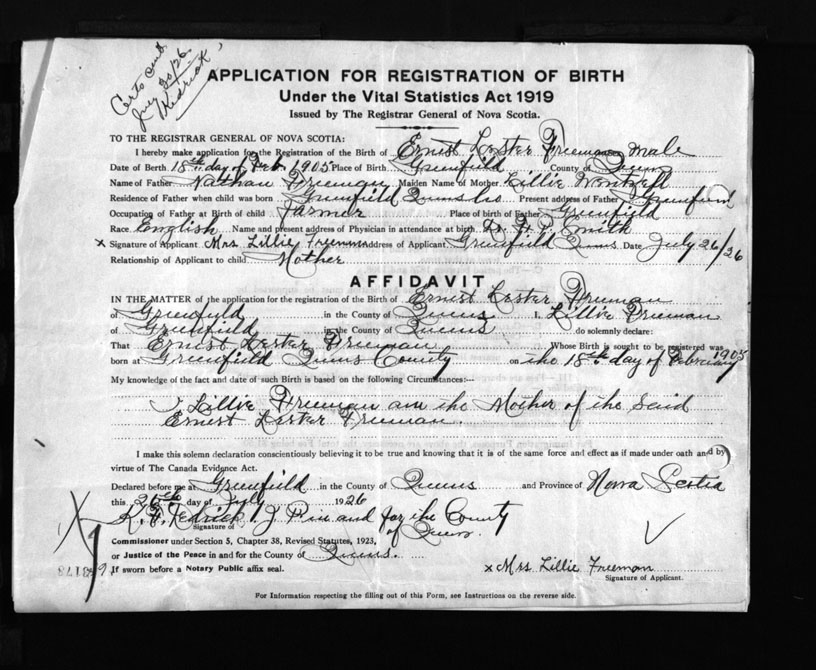 Certs sent
July 30/26.
APPLICATION FOR REGISTRATION OF BIRTH
Under the Vital Statistics Act 1919
Issued by The Registrar General of Nova Scotia.
TO THE REGISTRAR GENERAL OF NOVA SCOTIA:
I hereby make application for the Registration of the Birth of Ernest Lester Freeman male
Date of Birth 18th day of Feb. 1905 Place of Birth Greenfield County of Queens
Name of Father Nathan Freeman Maiden Name of Mother Lillie
Residence of Father when child was born Greenfield Queens Co Present address of Father Greenfield
Occupation of Father at Birth of child farmer Place of birth of Father Greenfield
Race English Name and present address of Physician in attendance at birth Dr. Smith
x Signature of Applicant Mrs Lillie Freeman Address of Applicant Greenfield Queens Date July 26/26
Relationship of Applicant to child Mother
AFFIDAVIT
IN THE MATTER of the application for the registration of the Birth of Ernest Lester Freeman
of Greenfield in the County of Queens I, Lillie Freeman
of Greenfield in the County of Queens do solemnly declare:
That Ernest Lester Freeman Whose Birth is sought to be registered was
born at Greenfield Queens County on the 18th day of February 1905
My knowledge of the fact and date of such Birth is based on the following Circumstances:—
I Lillie Freeman am the Mother of the Said
Ernest Lester Freeman.
I make this solemn declaration conscientiously believing it to be true and knowing that is of the same force and effect as if made under oath and by
virtue of The Canada Evidence Act.
Declared before me at Greenfield in the County of Queens and Province of Nova Scotia
this 26th day of July 1926
J. P. in and for the County
Signature of
of Queens.
Commissioner under Section 5, Chapter 38, Revised Statutes, 1923,
or Justice of the Peace in and for the County of Queens.
If sworn before a Notary Public affix seal.
x Mrs Lillie Freeman
Signature of Applicant.
For Information respecting the filling out of this Form, see Instructions on the reverse side.